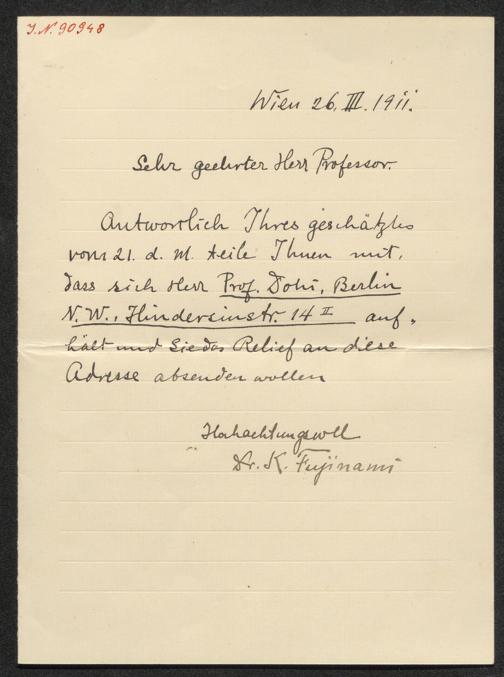 J.N. 90948
Wien 26. III. 1911.
Sehr geehrter Herr Professor.
Antwortlich Ihres geschätztes
vom 21. d. M. teile Ihnen mit,
dass sich Herr Prof. Dohi, Berlin
N. W., Hindersinstr. 14 II auf-
hält und Sie das Relief an diese
Adresse absenden wollen
Hochachtungsvoll
Dr. K. Fujinami